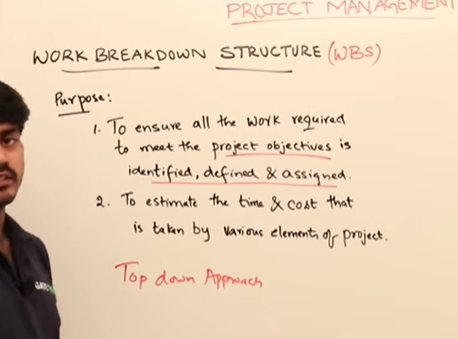 PROJECT MANAGEMENT
WORK BREAKDOWN STRUCTURE (WBS)
Purpose:
1. To ensure all the work required
to meet the project objectives is
identified, defined & assigned.
2. To estimate the time & cost that
is taken by various elements of project.
Top down Approach